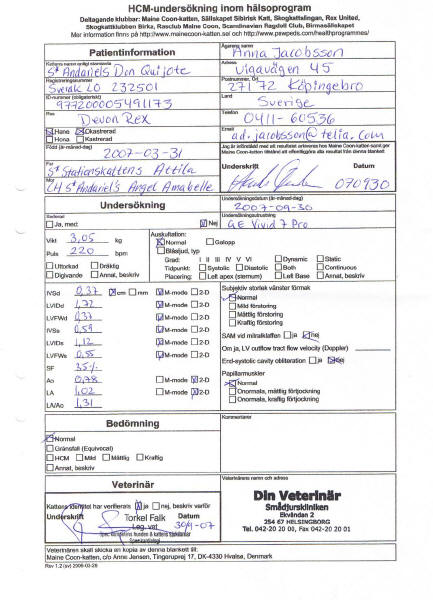 HCM-undersökning inom hälsoprogram
Deltagande klubbar: Maine Coon-katten, Sällskapet Sibirisk Katt, Skogkattslingan, Rex United,
Skogkattklubben Birka, Rasclub Maine Coon, Scandinavian Ragdoll Club, Birmasällskapet
Mer information finns på http://www.mainecoon-katten.se/ och http://www.pawpeds.com/healthprogrammes/
Patientinformation
Kattens namn enligt stamtavla
S* Andariels Don Quijote
Registreringsnummer
Sverak LO 232501
ID-nummer (obligatoriskt)
977200005491173
Ras
Devon Rex
Hane Kastrerad
Hona Kastrerad
Född (år-månad-dag)
2007-03-31
Far
S* Stationskattens Attila
Mor
CH S* Andariel's Angel Amabelle
Ägarens namn
Anna Jacobsson
Vigavägen 45
Postnummer, Ort
271 72 Köpingebro
Land
Sverige
Telefon
0411-60536
Email
ad.jacobsson@telia.com
Underskrift Datum
070930
Undersökning
Sederad
Ja, med: Nej
Vikt 3,05 kg
Puls 220 bpm
Uttorkad Dräktig
Digivande Annat, beskriv
Undersökningsdatum (år-månad-dag)
2007-09-30
Undersökningsutrustning
GE Vivid 7 Pro
Auskultation:
Normal Galopp
Blåsljud, typ
Grad: I II III IV V VI Dynamic Static
Tidpunkt: Systolic Diastolic Both Continuous
Placering: Left apex (sternum) Left Base Annat, beskriv
IVSd 0,37 cm mm M-mode 2-D
LVIDd 1,72 M-mode 2-D
LVFWd 0,37 M-mode 2-D
IVSs 0,59 M-mode 2-D
LVIDs 1,12 M-mode 2-D
LVFWs 0,55 M-mode 2-D
SF 35%
Ao 0,78 M-mode 2-D
LA 1,02 M-mode 2-D
LA/Ao 1,31
Subjektiv storlek vänster förmak
Normal
Mild förstoring
Måttlig förstoring
Kraftig förstoring
SAM vid mitralklaffen ja nej
Om ja, LV outflow tract flow velocity (Doppler)
End-systolic cavity obliteration ja nej
Papillarmuskler
Normal
Onormala, måttlig förtjockning
Onormala, kraftig förtjockning
Bedömning
Normal
Gränsfall (Equivocal)
HCM Mild Måttlig Kraftig
Annat, beskriv
Kommentarer
Veterinär
Kattens identitet har verifierats ja nej, beskriv varför
Underskrift Datum
Torkel Falk
Leg. vet
30/9-07
Veterinärens namn och adress
Din Veterinär
Smådjurskliniken
Ekvändan 2
254 67 HELSINGBORG
Tel. 042-20 20 00, Fax 042-20 20 01
Veterinären skall skicka en kopia av denna blankett till:
Maine Coon-katten, c/o Anne Jensen, Tingerupvej 17, DK-4330 Hvalsø, Denmark